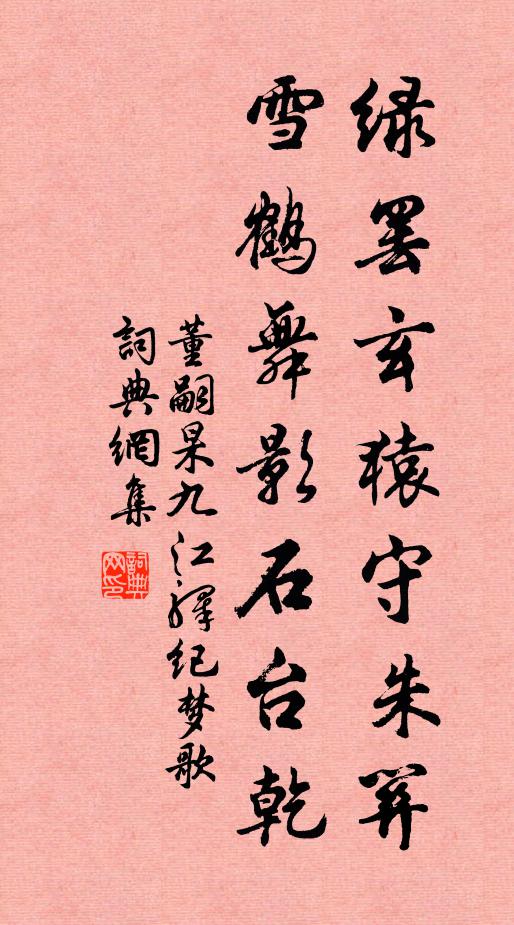 绿罢玄猿守朱
雪鹤舞影石台乾
董嗣杲九江驛纪梦歌
詞典網集
詞典网印